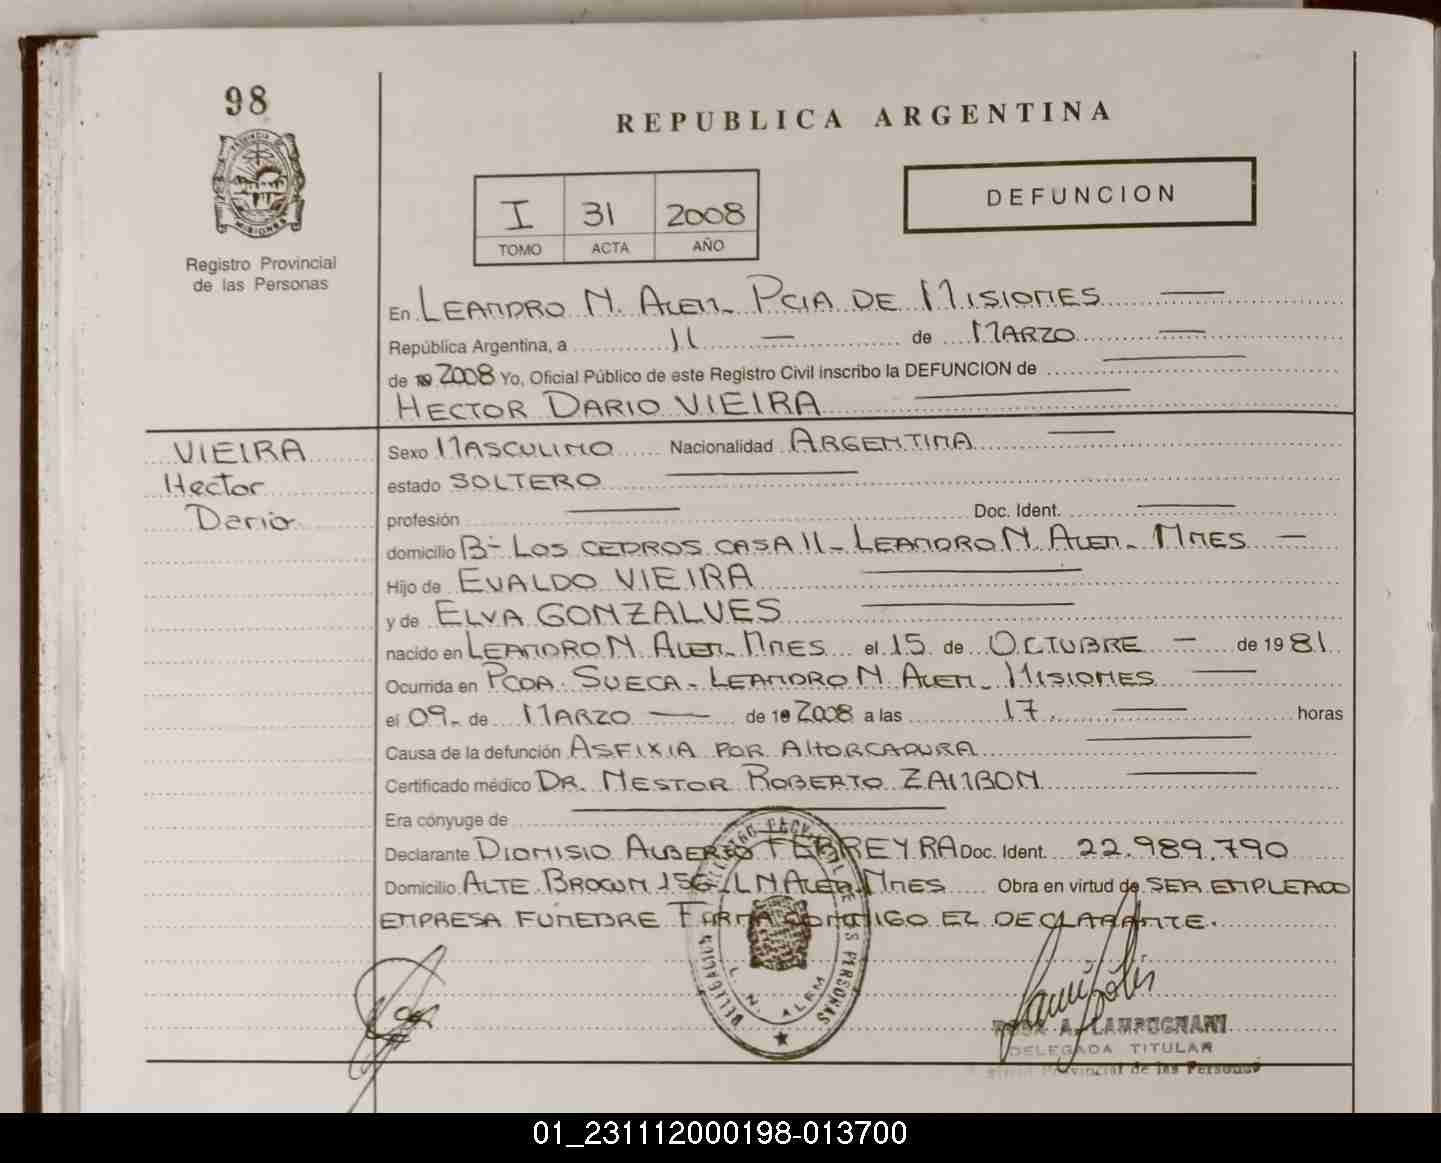 98
REPUBLICA ARGENTINA
PROVINCIA DE
MISIONES
Registro Provincial
de las Personas
I 31 2008
TOMO ACTA AÑO
DEFUNCION
En LEANDRO N. ALEM - PCIA DE MISIONES
República Argentina, a 11 de MARZO
de 2008 Yo, Oficial Público de este Registro Civil inscribo la DEFUNCION de
HECTOR DARIO VIEIRA
VIEIRA
Hector
Dario
Sexo MASCULINO Nacionalidad ARGENTINA
estado SOLTERO
profesión Doc. Ident.
domicilio Bº LOS CEDROS CASA 11 - LEANDRO N. ALEM - MNES -
Hijo de EVALDO VIEIRA
y de ELVA GONZALVES
nacido en LEANDRO N. ALEM - MNES el 15 de OCTUBRE - de 1981
Ocurrida en PCDA. SUECA - LEANDRO N. ALEM - MISIONES
el 09 - de MARZO de 2008 a las 17 horas
Causa de la defunción ASFIXIA POR AHORCADURA
Certificado médico DR. NESTOR ROBERTO ZAMBON
Era cónyuge de
Declarante DIONISIO ALBERTO FERREYRA Doc. Ident. 22.989.790
Domicilio ALTE. BROWN 156 - L N ALEM - MNES Obra en virtud de SER EMPLEADO
EMPRESA FUNEBRE FIRMA CONMIGO EL DECLARANTE.
L. N. ALEM
ROSA A. LAMPUGNANI
DELEGADA TITULAR
Provincial de las Personas
01_231112000198-013700